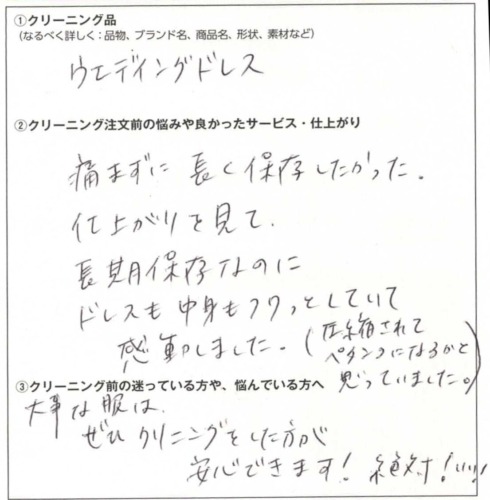 ①クリーニング品
(なるべく詳しく：品物、ブランド名、商品名、形状、素材など)
ウエディングドレス
②クリーニング注文前の悩みや良かったサービス・仕上がり
痛まずに長く保存したかった。
仕上がりを見て、
長期保存なのに
ドレスも中身もフワっとしていて
感動しました。(圧縮されて
ペタンコになるかと
思っていました。)
③クリーニング前の迷っている方や、悩んでいる方へ
大事な服は、
ぜひクリニングをした方が
安心できます！絶対！いい！